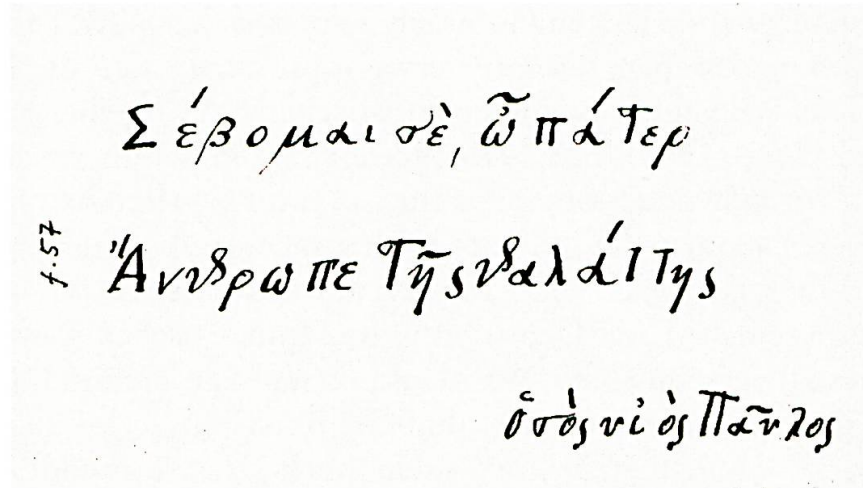 Σέβομαι σὲ, ὦ πάτερ
Ἄνθρωπε τῆς θαλάττης
ὁ σὸς υἱὸς Παῦλος
f.57